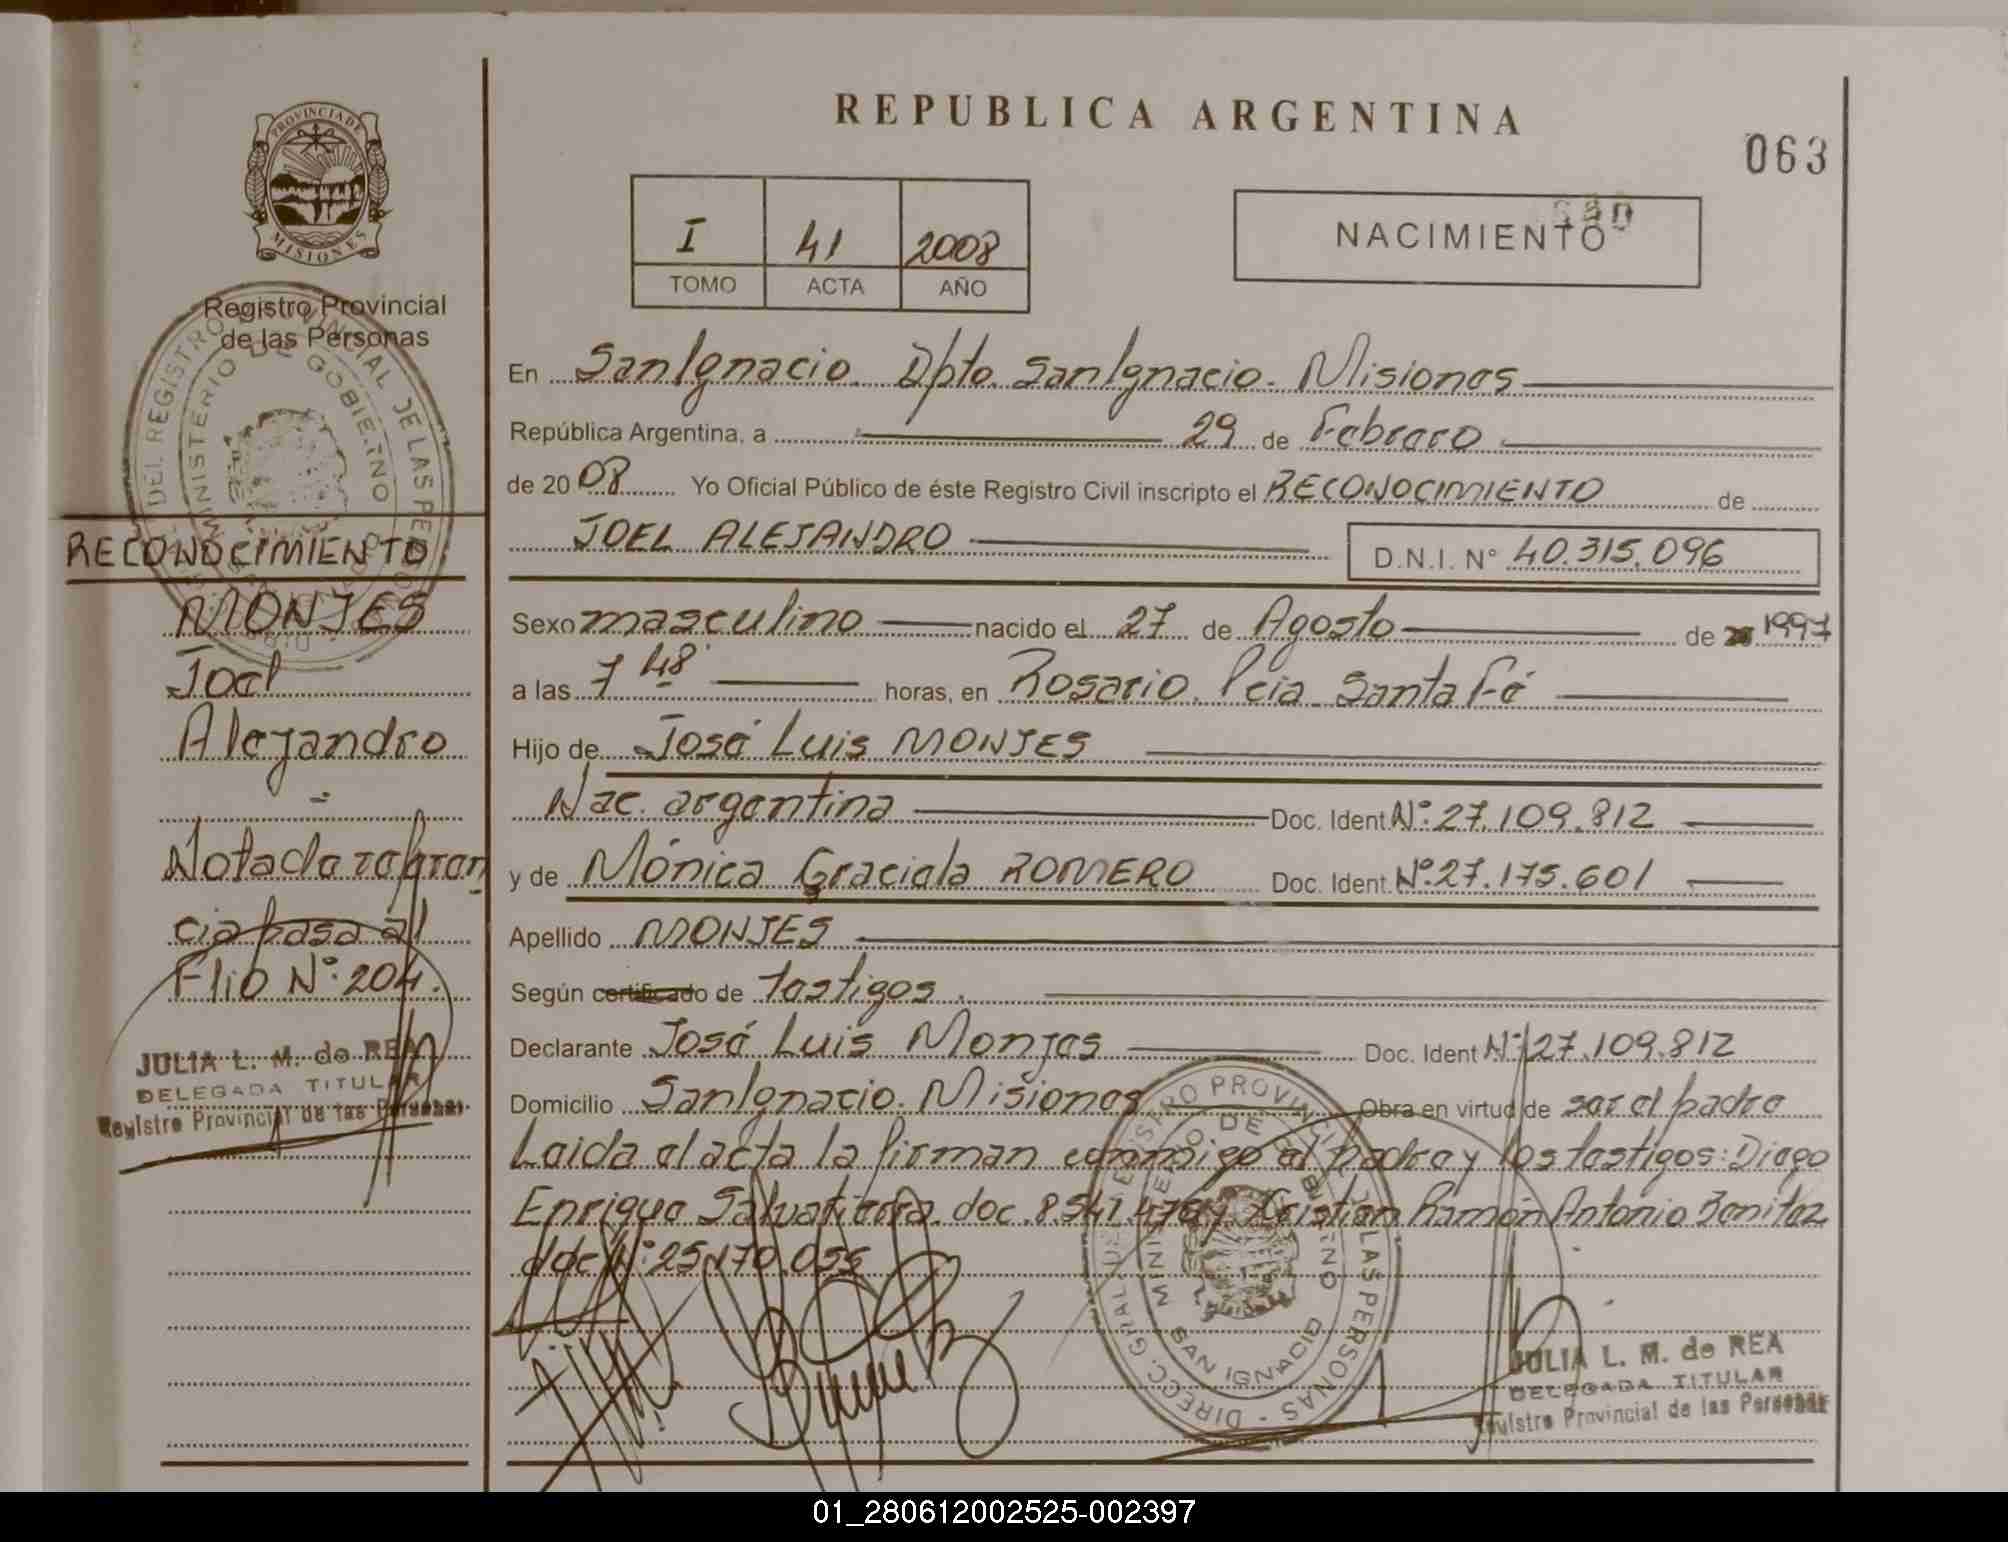 REPUBLICA ARGENTINA
063
PROVINCIA DE
MISIONES
Registro Provincial
de las Personas
I 41 2008
TOMO ACTA AÑO
NACIMIENTO
En San Ignacio. Dpto. San Ignacio. Misiones
República Argentina, a 29 de Febrero
de 2008 Yo Oficial Público de éste Registro Civil inscripto el RECONOCIMIENTO de
JOEL ALEJANDRO D.N.I. N° 40.315.096
Sexo masculino nacido el 27 de Agosto de 1997
a las 7 48 horas, en Rosario. Pcia. Santa Fé
Hijo de José Luis MONJES
Nac. argentina Doc. Ident. N°: 27.109.812
y de Mónica Graciela ROMERO Doc. Ident. N°: 27.175.601
Apellido MONJES
Según certificado de testigos.
Declarante José Luis Monjes Doc. Ident N°: 27.109.812
Domicilio San Ignacio. Misiones Obra en virtud de ser el padre
Leida el acta la firman conmigo el padre y los testigos: Diego
Enrique Salvatierra. doc. 8.541.476 y Cristian Ramón Antonio Benitez
doc N°: 25.170.055
RECONOCIMIENTO
MONJES
Joel
Alejandro
Nota de referen
cia pasa al
Flio N°: 204.
JULIA L. M. de REA
DELEGADA TITULAR
Registro Provincial de las Personas
MINISTERIO DE GOBIERNO
SAN IGNACIO
DIRECC. GRAL. DEL REGISTRO PROVINCIAL DE LAS PERSONAS
JULIA L. M. de REA
DELEGADA TITULAR
Registro Provincial de las Personas
01_280612002525-002397